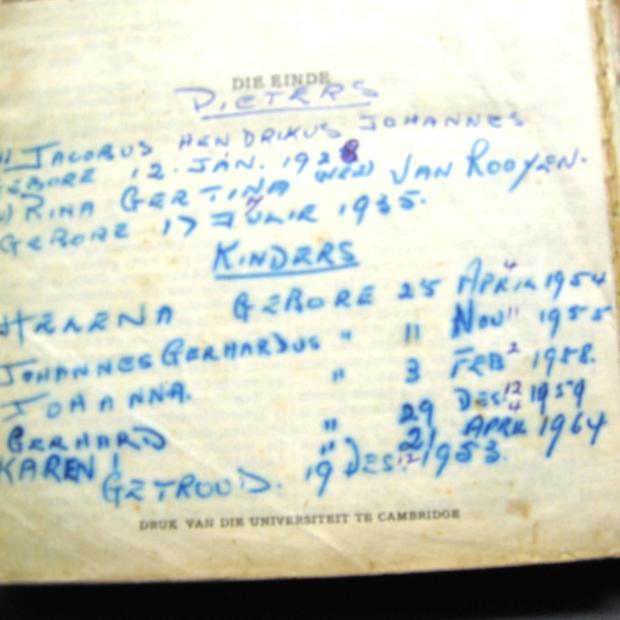 DIE EINDE
PIETERS
JACOBUS HENDRIKUS JOHANNES
GEBORE 12. JAN. 1928
RINA GERTINA (NEE) JAN ROOYEN.
GEBORE 17 JULIE 1935.
KINDERS
HELENA GEBORE 25 APRIL 4 1954
JOHANNES GERHARDUS " 11 NOV 11 1955
JOHANNA. " 3 FEB 2 1958.
GERHARD " 29 DES. 12 1959
KAREN " 21 APRIL 4 1964
GETROUD. 19 DES. 12 1953.
DRUK VAN DIE UNIVERSITEIT TE CAMBRIDGE